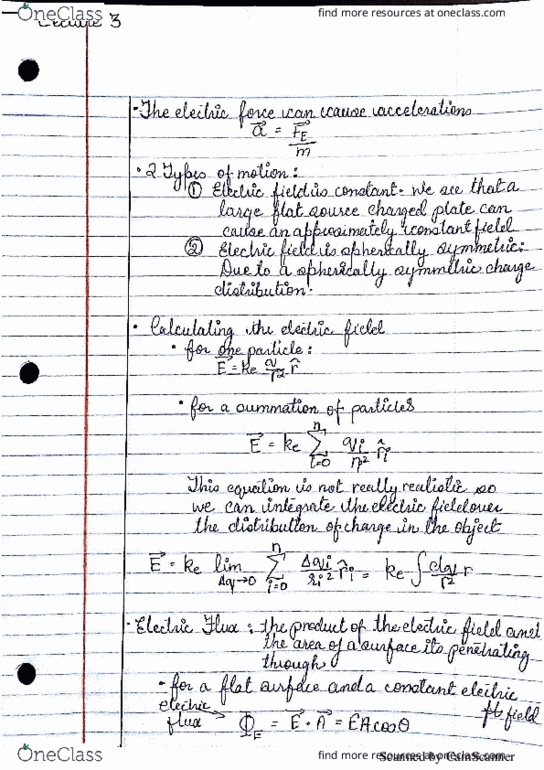 OneClass
find more resources at oneclass.com
Lecture 3
· The electric force can cause accelerations
a⃗ = F⃗_E / m
· 2 Types of motion:
① Electric field is constant. We see that a
large flat source charged plate can
cause an approximately constant field
② Electric field is spherically symmetric:
Due to a spherically symmetric charge
distribution.
· Calculating the electric field
· for one particle:
E⃗ = ke q/r² r̂
· for a summation of particles
E⃗ = ke Σ_{i=0}^{n} qi/ri² r̂i
This equation is not really realistic so
we can integrate the electric field over
the distribution of charge in the object
E⃗ = ke lim_{Δq→0} Σ_{i=0}^{n} Δqi/ri² r̂i = ke ∫ dq/r² r
· Electric Flux : the product of the electric field and
the area of a surface its penetrating
through
- for a flat surface and a constant electric
field
electric flux → Φ_E = E⃗ · A⃗ = EA cos θ
OneClass
find more resources at oneclass.com
Scanned by CamScanner